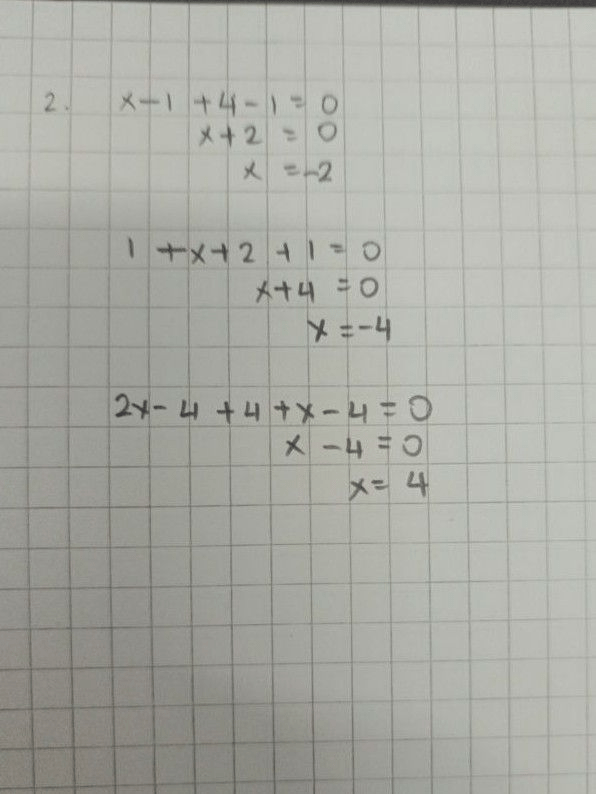 2. x-1 +4-1 = 0
x+2 = 0
x = -2
1 +x+2 +1 = 0
x+4 = 0
x = -4
2x-4 +4 +x-4 = 0
x -4 = 0
x = 4